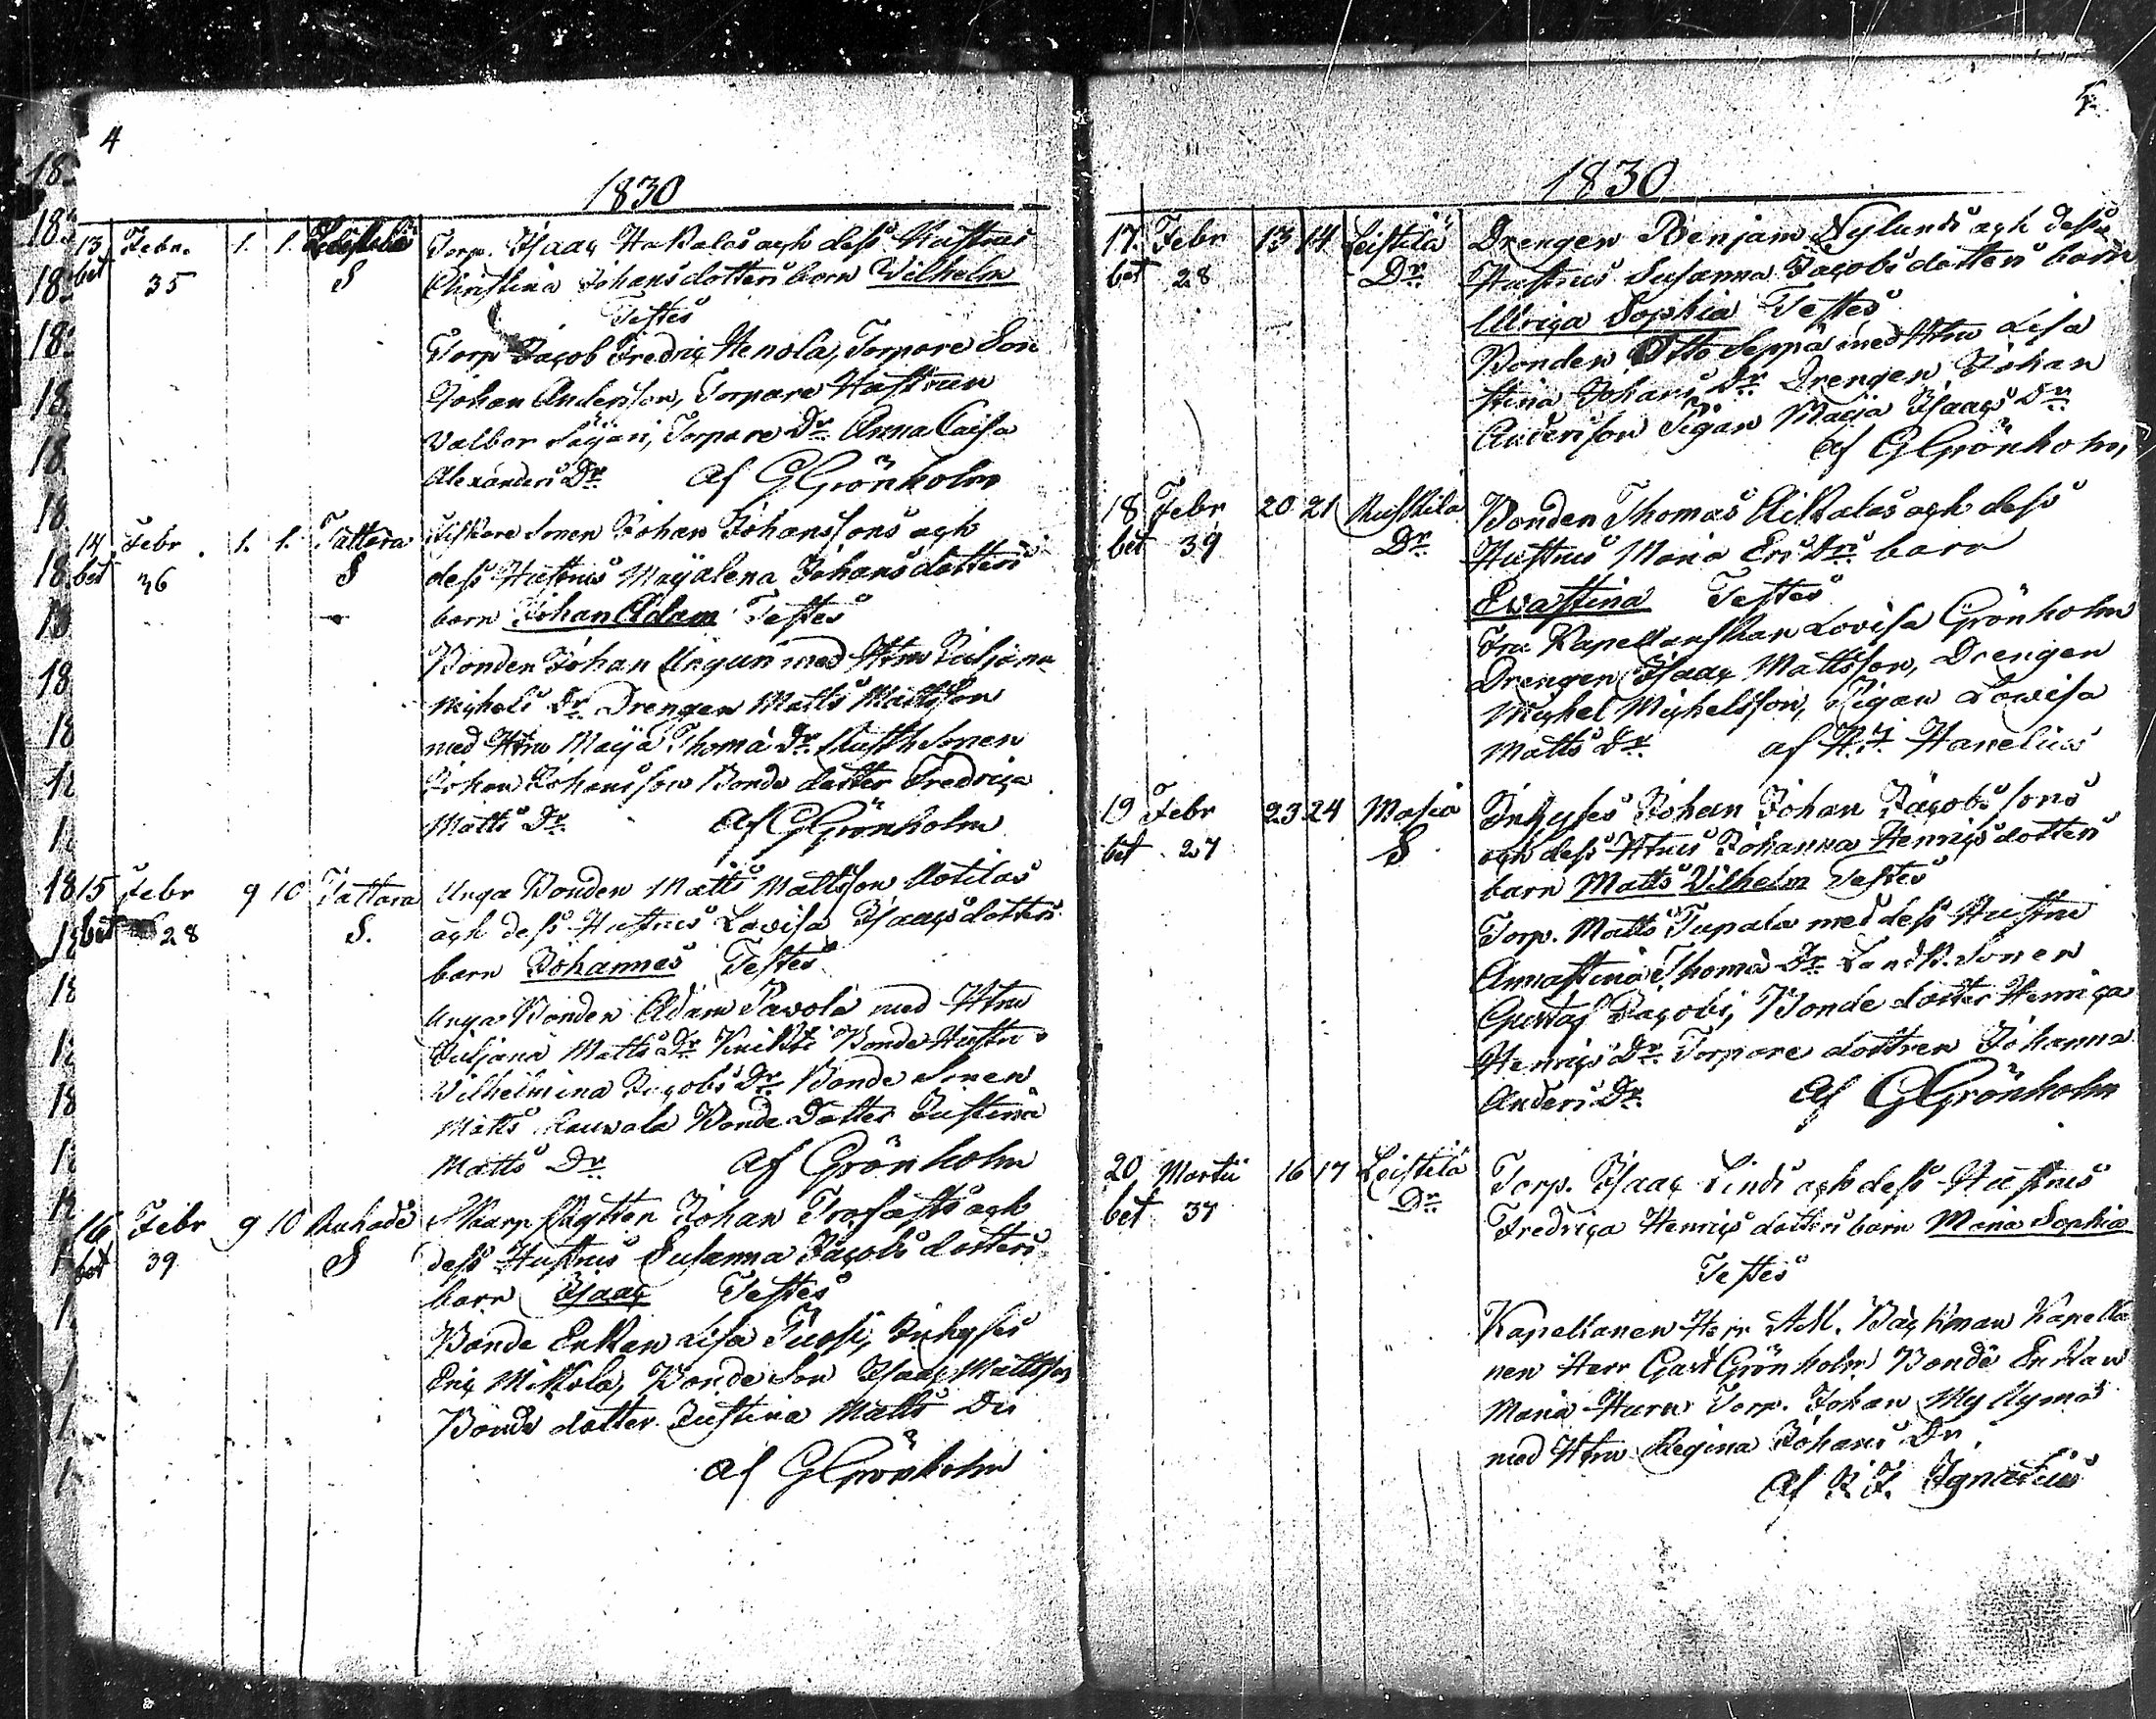 4
1830
13 Febr. 1. 1. Leistilä Torp. Isaac Hakalas och dess Hustrus
bet 35 S Christina Johansdotters barn Wilhelm
Testes
Torp Jacob Fredric Henola, Torpare Son
Johan Andersson, Torpare Hustrun
Valbor Säÿäri, Torpare Dr Anna Caisa
Alexanders Dr af GGrönholm
14 Febr. 1. 1. Tattara Sonen Johan Johanssons och
bet 36 S dess Hustrus Majalena Johansdotters
barn Johan Adam Testes
Bonden Johan Unguri med Htru Juljana
Michels Dr Drengen Matts Mattsson
med Htru Maija Thoma Dr Sonen
Johan Johansson Bonde dotter Fredrica
Matts Dr af GGrönholm
15 Febr 9 10 Tattara Unga Bonden Matts Mattsson Aotilas
bet 28 S. och dess Hustrus Lovisa Isaacsdotters
barn Johannes Testes
Unga Bonden Adam Pavola med Htru
Juljana Matts Dr Knikti Bonde Hustru
Wilhelmina Jacobs Dr Bonde Sonen
Matts Bonde Dotter Justina
Matts Dr af Grönholm
16 Febr 9 10 Rahade Skarp Skytten Johan Trofasts och
bet 39 S dess Hustrus Susanna Jacobsdotters
barn Isaac Testes
Bonde Enkan Lisa Jussi, Inhyses
Eric Mikola, Bonde Son Isaac Mattsson
Bonde dotter Justina Matts Dr
af GGrönholm
5
1830
17. Febr 13 14 Leistilä Drengen Benjam Nylunds och dess
bet 28 Dr Hustrus Susanna Jacobsdotters barn
Ulrica Sophia Testes
Bonden Otto Seppä med Htru Lisa
Stina Johans Dr Drengen Johan
Andersson Pigan Maja Isaacs Dr
af GGrönholm
18 Febr 20 21 Ruskila Bonden Thomas Uikalas och dess
bet 39 Dr Hustrus Maria Ers Drs barn
Evastina Testes
Fru Kapellanskan Lovisa Grönholm
Drengen Isaac Mattsson, Drengen
Michel Michelsson, Pigan Lovisa
Matts Dr af H.J. Hanelius
19 Febr 23 24 Masia Inhyses Johan Johan Jacobssons
bet 27 S och dess Htrus Johanna Henricsdotters
barn Matts Wilhelm Testes
Torp. Matts Tupala med dess Hustru
Annastina Thoma Dr Landb. Sonen
Gustaf Jacobs, Bonde dotter Henrica
Henrics Dr Torpare dottren Johanna
Anders Dr af GGrönholm
20 Martii 16 17 Leistilä Torp. Isaac Linds och dess Hustrus
bet 37 Dr Fredrica Henricsdotters barn Maria Sophia
Testes
Kapellanen Herr AM. Bäckman Kapella
nen Herr Gust Grönholm Bonde Enkan
Maria Huru Torp. Johan Myllymä
med Htru Regina Johans Dr
af J. F. Ignatius